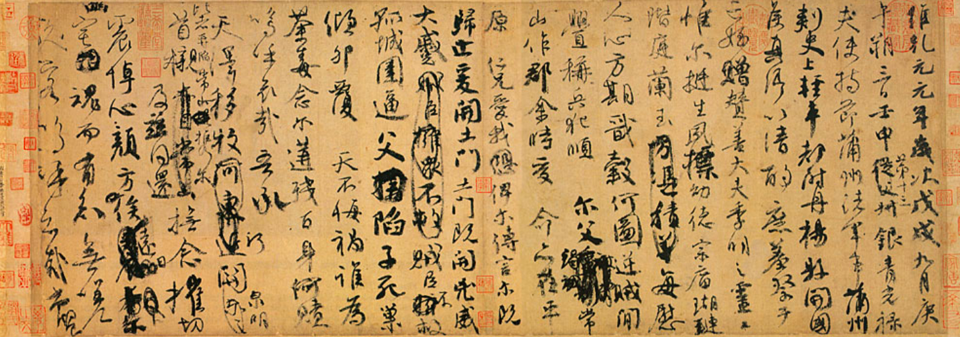 維乾元元年歲次戊戌九月庚
午朔三日壬申第十三從父叔銀青光祿
夫使持節蒲州諸軍事蒲州
刺史上輕車都尉丹楊縣開國
侯真卿以清酌庶羞祭于
亡姪贈贊善大夫季明之靈曰
惟爾挺生夙標幼德宗廟瑚璉
階庭蘭玉方憑積善每慰
人心方期戩穀何圖逆賊閒
釁稱兵犯順爾父竭誠常
山作郡余時受命亦在平
原仁兄愛我俾爾傳言爾既
歸止爰開土門土門既開凶威
大蹙賊臣擁眾不救賊臣不救
孤城圍逼父陷子死巢
傾卵覆天不悔禍誰為
荼毒念爾遘殘百身何贖
嗚呼哀哉吾承
天澤移牧河東近河關泉明
比者再陷常山攜爾
首櫬及茲同還撫念摧切
震悼心顏方俟遠日
幽宅魂而有知無嗟
久客嗚呼哀哉尚饗